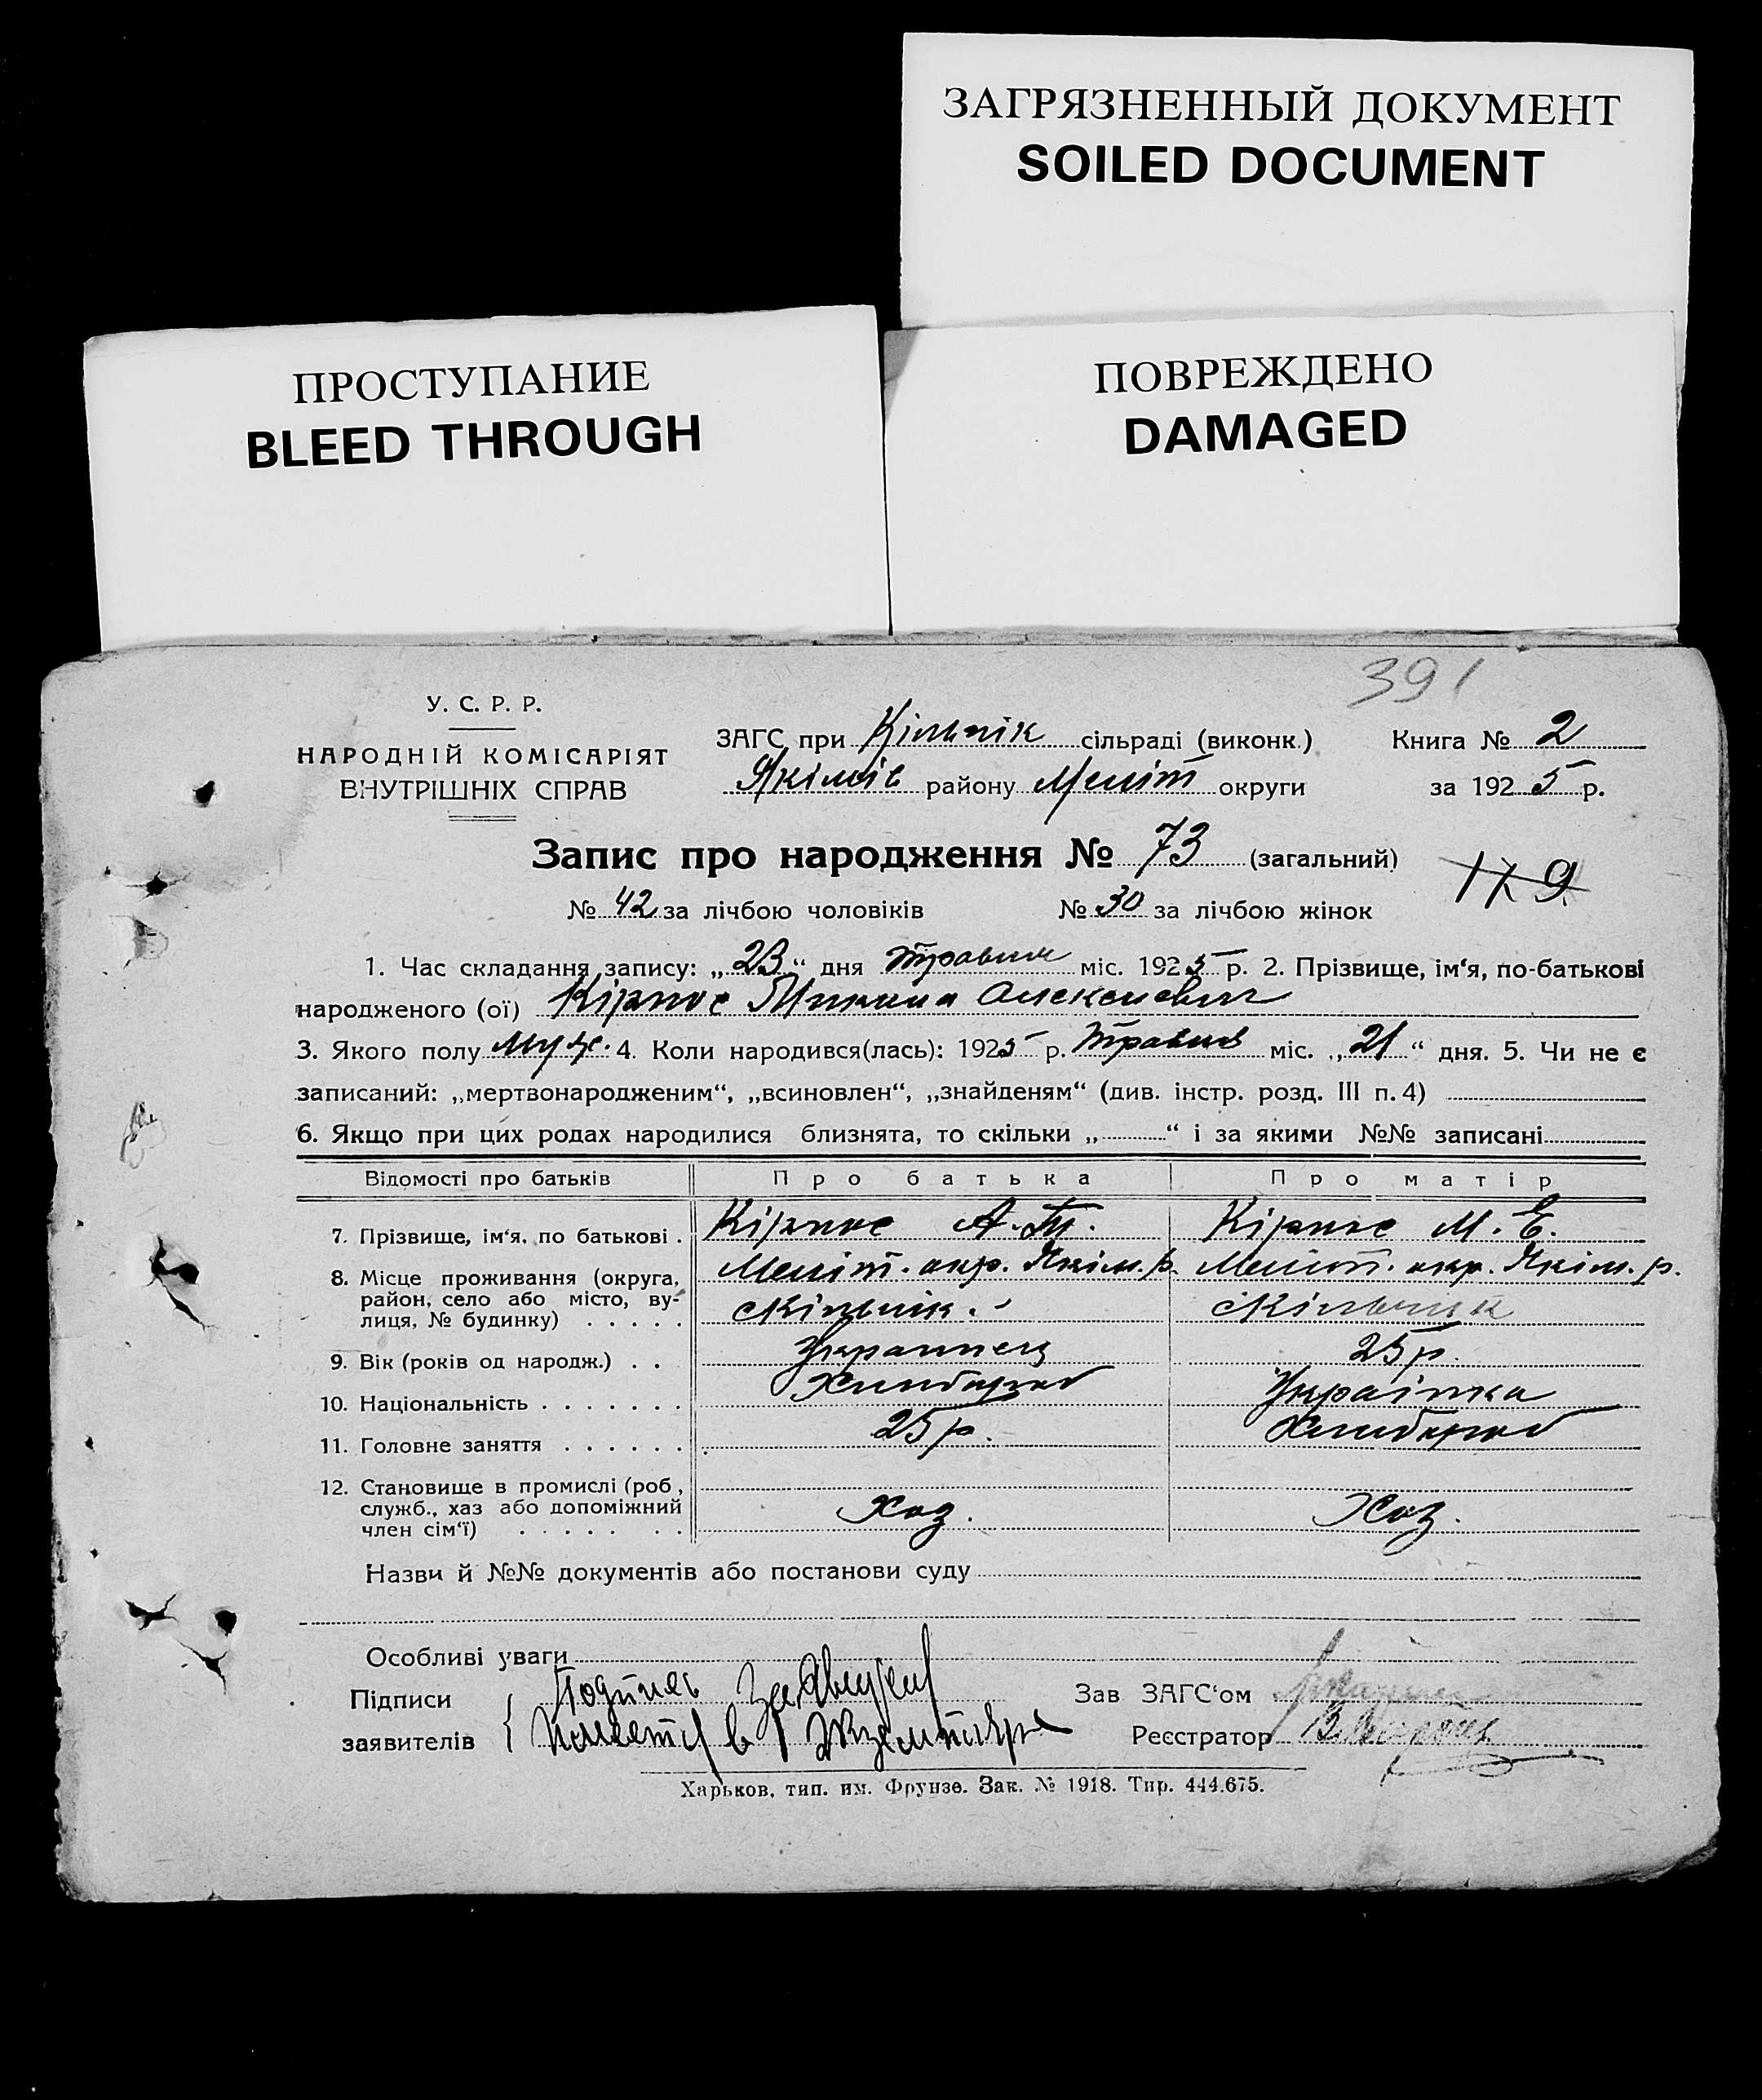 ЗАГРЯЗНЕННЫЙ ДОКУМЕНТ
SOILED DOCUMENT
ПРОСТУПАНИЕ
BLEED THROUGH
ПОВРЕЖДЕНО
DAMAGED
391
У. С. Р. Р.
НАРОДНІЙ КОМІСАРІЯТ
ВНУТРІШНІХ СПРАВ
ЗАГС при сільраді (виконк.) Книга № 2
Якімів району Меліт округи за 1925 р.
Запис про народження № 73 (загальний)
179
№ 42 за лічбою чоловіків № 30 за лічбою жінок
1. Час складання запису: „23“ дня травня міс. 1925 р. 2. Прізвище, ім‘я, по-батькові
народженого (ої) Кірпос Микита Олексиевич
3. Якого полу муж. 4. Коли народився(лась): 1925 р. травня міс. „21“ дня. 5. Чи не є
записаний: „мертвонародженим“, „всиновлен“, „знайденям“ (див. інстр. розд. III п. 4)
6. Якщо при цих родах народилися близнята, то скільки „ “ і за якими №№ записані
Відомості про батьків Про батька Про матір
7. Прізвище, ім‘я, по батькові . Кірпос А. Т. Кірпос М. Е.
8. Місце проживання (округа, Меліт. окр. Якім. р. Меліт. окр. Якім. р.
район, село або місто, ву-
лиця, № будинку) . . . . .
9. Вік (років од народж.) . . Украинец 25 р.
10. Національність . . . . . . . Хлибороб Українка
11. Головне заняття . . . . . . 25 р. Хлибороб
12. Становище в промислі (роб.,
служб., хаз або допоміжний Хоз. Хоз.
член сім‘ї) . . . . . . .
Назви й №№ документів або постанови суду
Особливі уваги
Підписи Подпись Зав ЗАГС‘ом
заявителів в Экземпляре Реєстратор
Харьков, тип. им. Фрунзе. Зак. № 1918. Тир. 444.675.